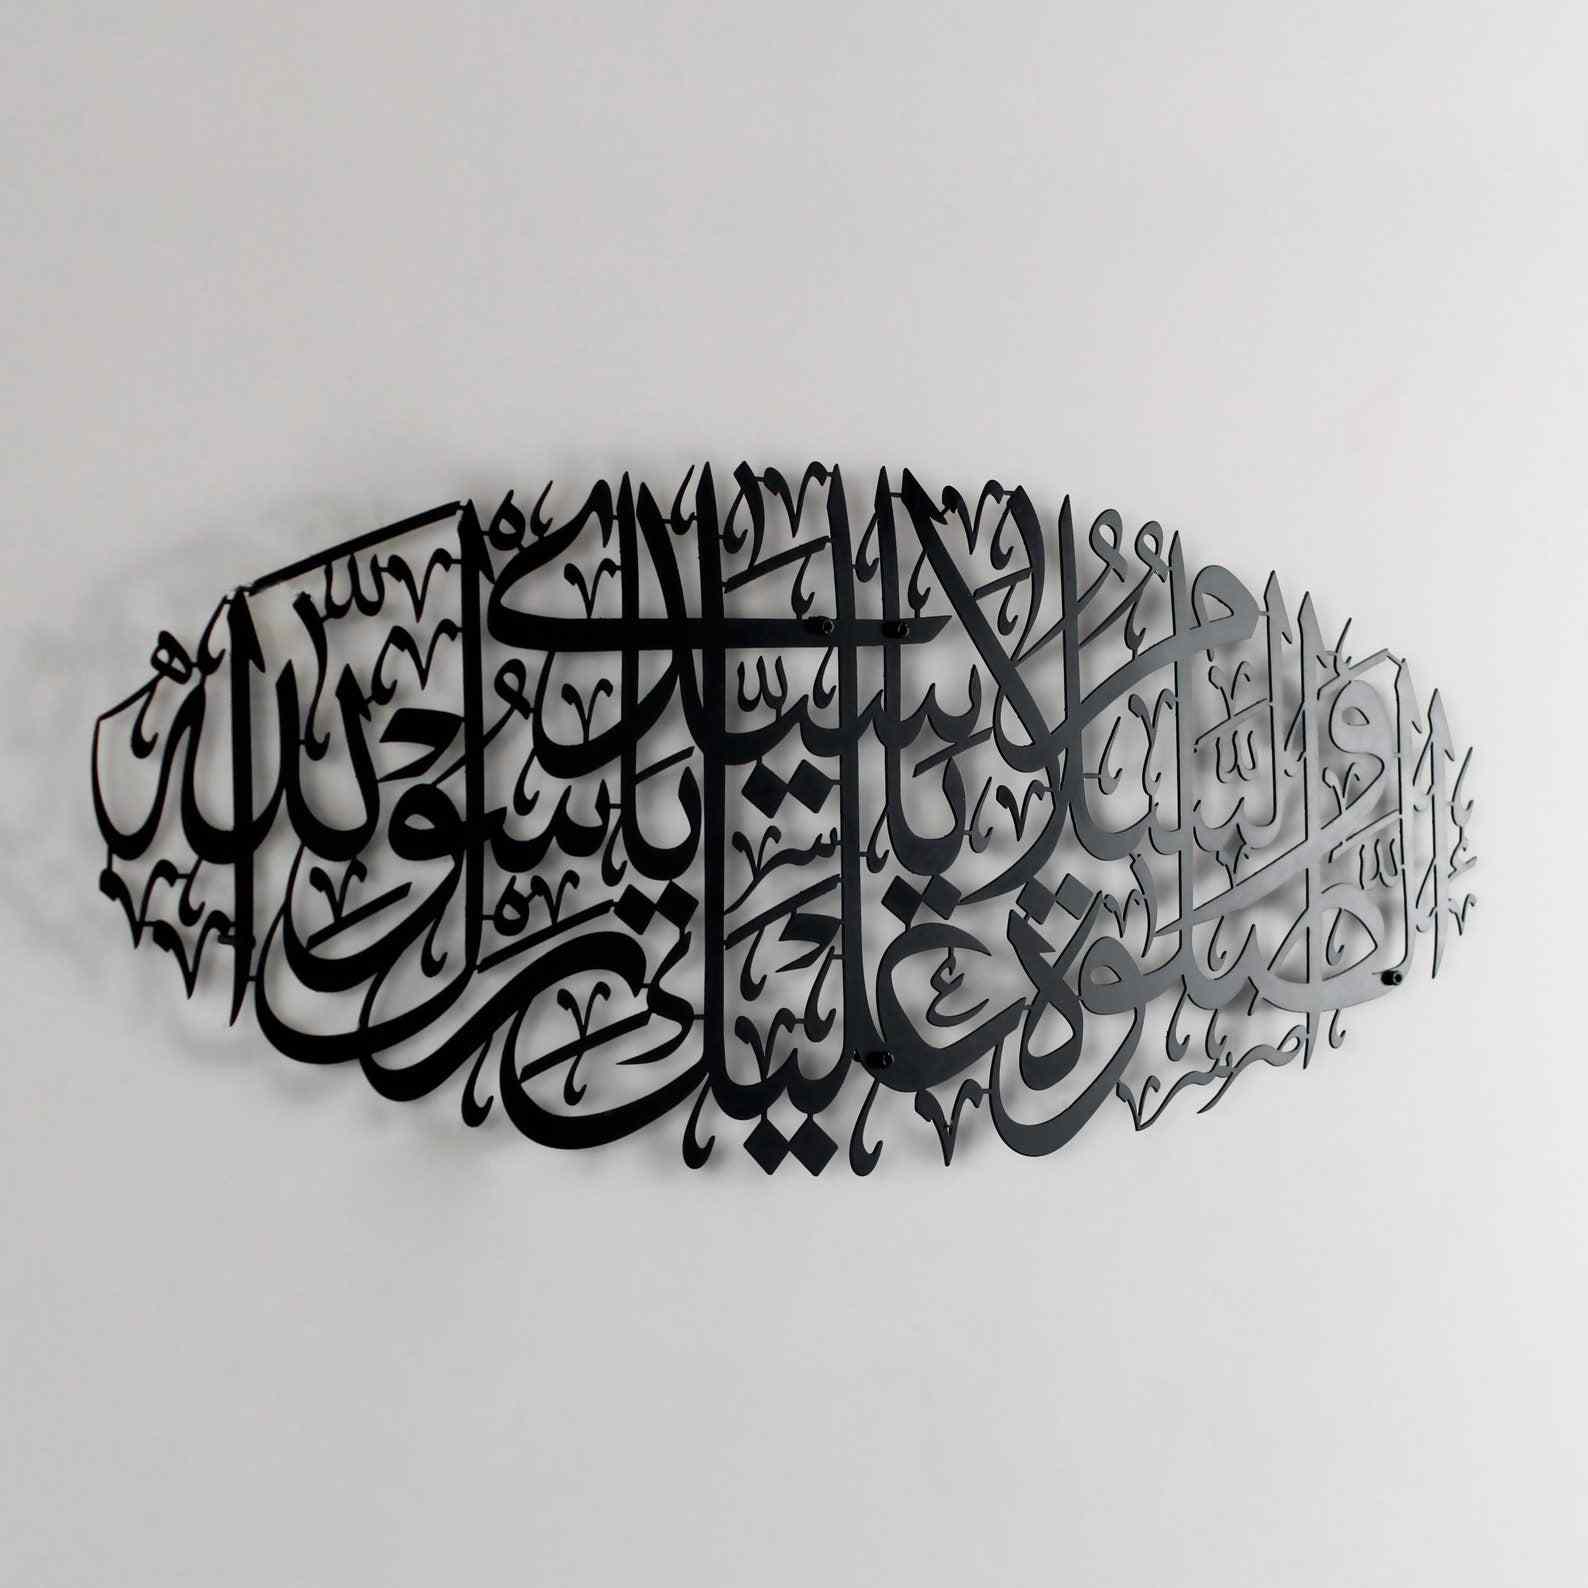 الصلوة والسلام عليك يا سيدى يا رسول الله